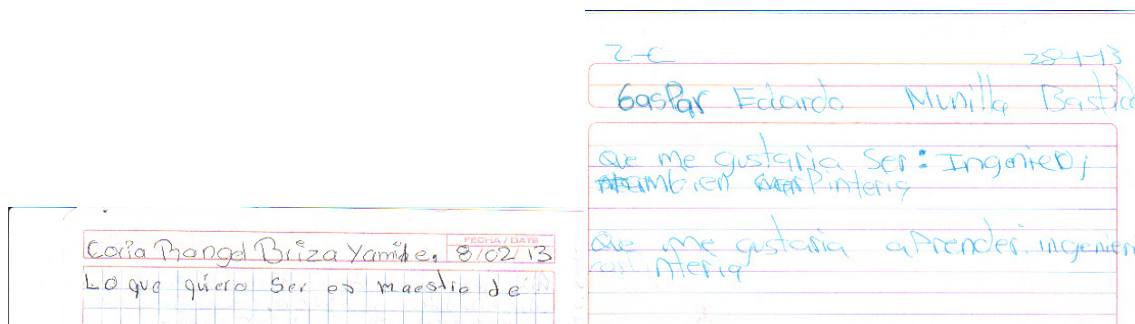 Coria Rangel Briza Yamile. 8/02/13
FECHA / DATE
Lo que quiero ser es maestro de
2-C 28-1-13
Gaspar Edardo Munilla Bastida
Que me gustaria Ser: Ingeniero,
tambien carpinteria
Que me gustaria aprender. ingenier
nteria